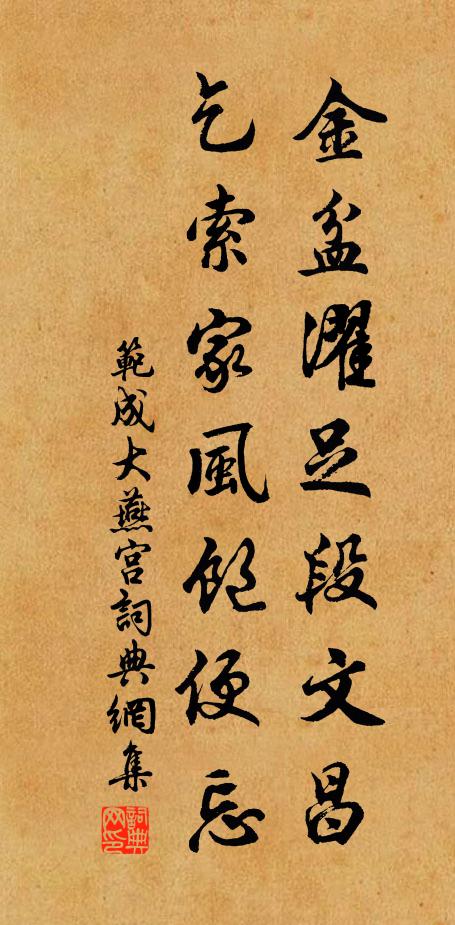 金盆濯足段文昌
乞索家風飽便忘
範成大燕宫詞典網集
詞典网印